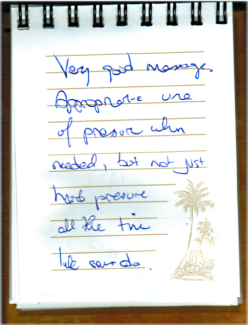 Very good massage.
Appropriate use
of pressure when
needed, but not just
hard pressure
all the time
like some do.